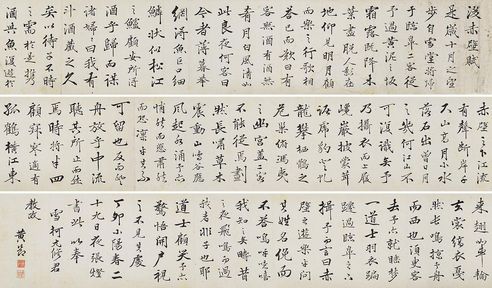 後赤壁賦
是歲十月之望
步自雪堂將歸
于臨皋二客從
予過黃泥之坂
霜露既降木
葉盡脫人影在
地仰見明月顧
而樂之行歌相
答已而歎曰有
客無酒有酒無
肴月白風清如
此良夜何客曰
今者薄暮舉
網得魚巨口細
鱗狀似松江
之鱸顧安所得
酒乎歸而謀
諸婦婦曰我有
斗酒藏之久
矣以待子不時
之需於是攜
酒與魚復遊於
赤壁之下江流
有聲斷岸千
尺山高月小水
落石出曾日月
之幾何而江山不
可復識矣予
乃攝衣而上履
巉巖披蒙茸
踞虎豹登虬
龍攀栖鶻之
危巢俯馮夷
之幽宮蓋二客
不能從焉劃
然長嘯草木
震動山鳴谷應
風起水涌予亦
悄然而悲肅然
而恐凜乎其不
可留也反而登
舟放乎中流
聽其所止而休
焉時將半四
顧寂寥適有
孤鶴橫江東
來翅如車輪
玄裳縞衣戛
然長鳴掠予舟
而西也須臾客
去予亦就睡夢
一道士羽衣蹁
躚過臨皋之下
揖予而言曰赤
壁之遊樂乎問
其姓名俛而
不答嗚呼噫嘻
我知之矣疇昔
之夜飛鳴而過
我者非子也耶
道士顧笑予亦
驚悟開戶視
之不見其處
丁卯小陽春二
十九日夜張燈
書此以奉
雪柯君
教政
黃